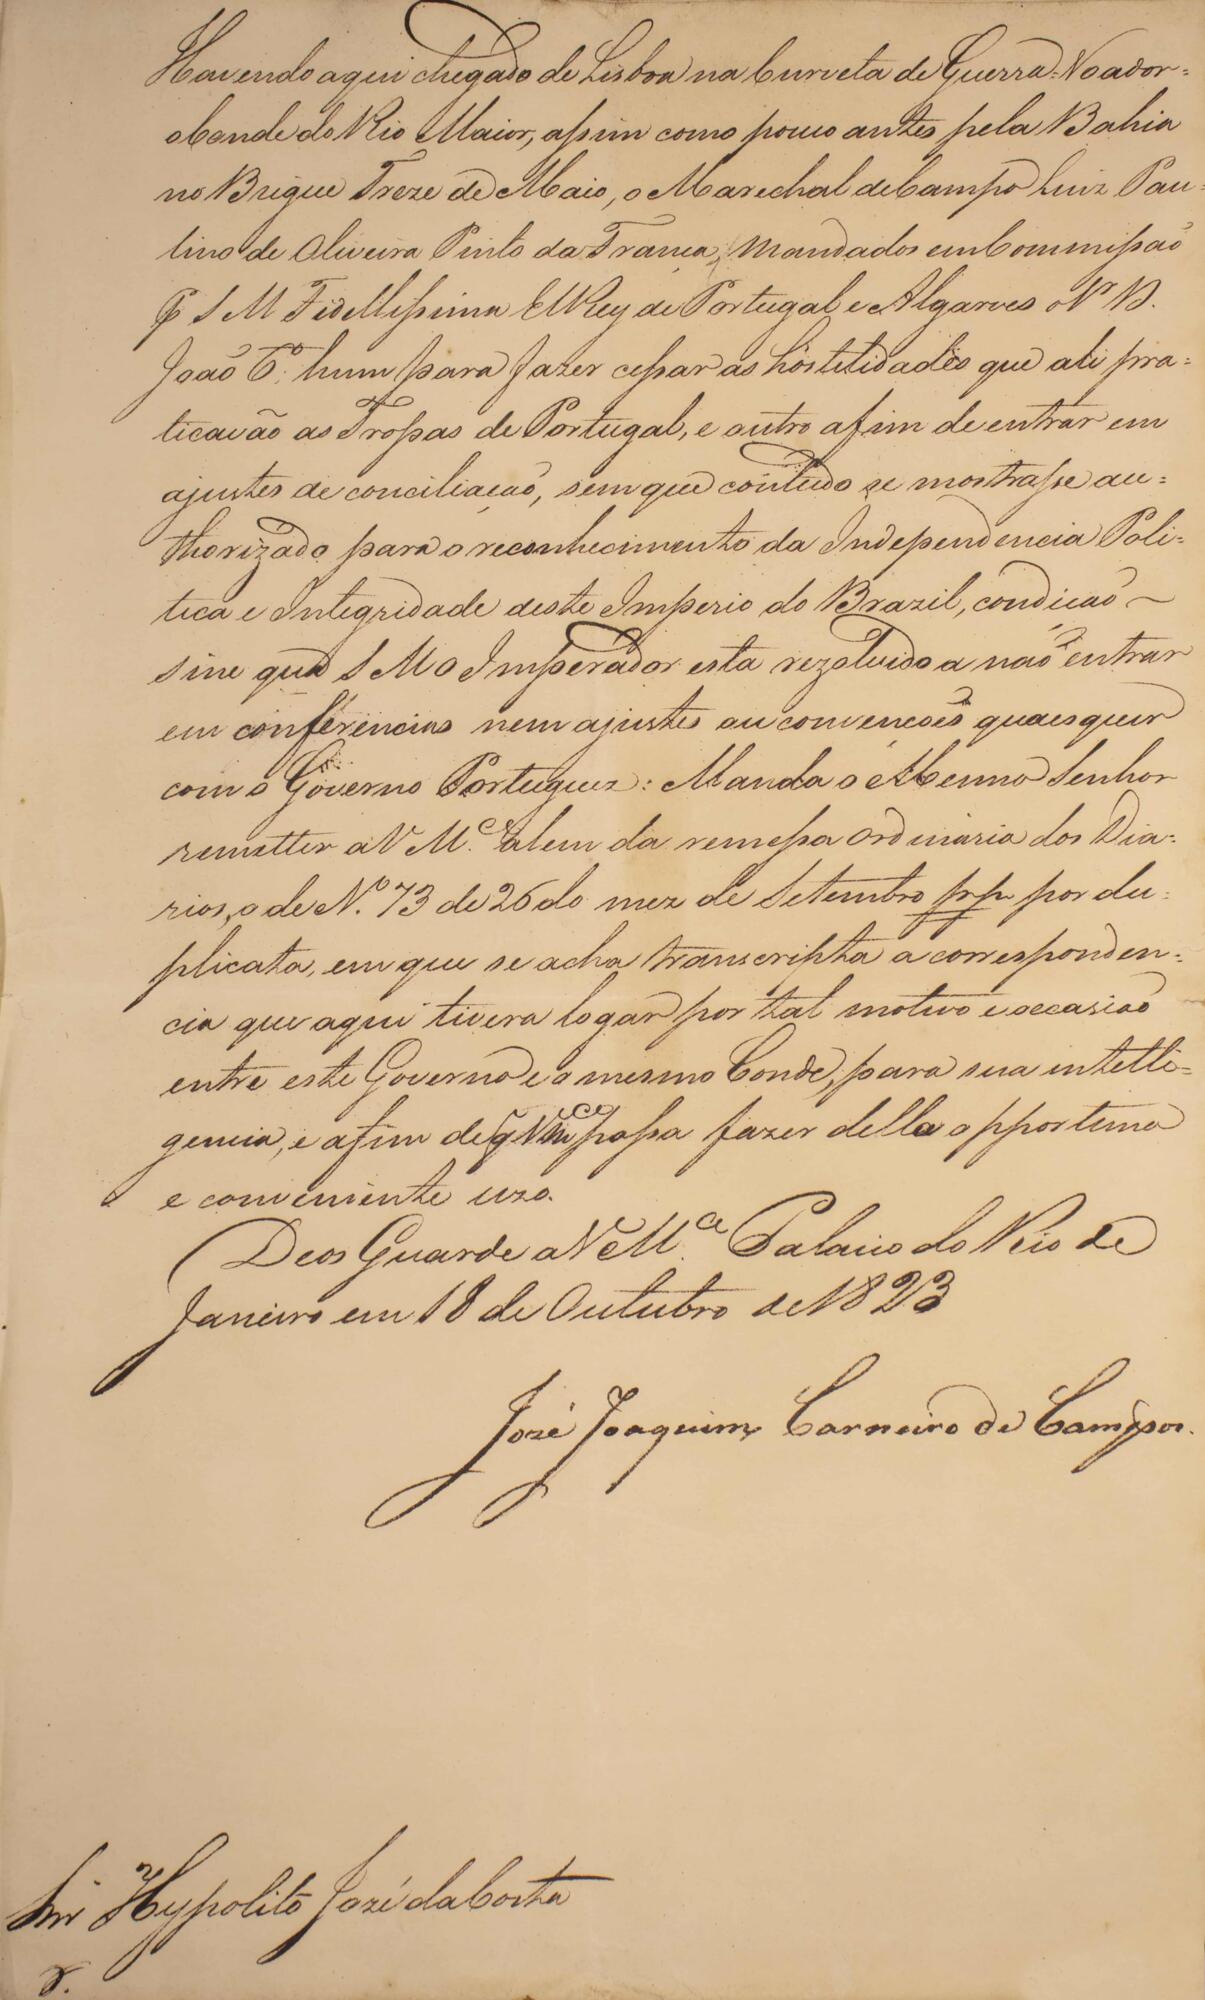 Havendo aqui chegado de Lisboa na Curveta de Guerra = Voador =
o Conde do Rio Maior, assim como pouco antes pela Bahia
no Brigue Treze de Maio, o Marechal de Campo Luiz Pau-
lino de Oliveira Pinto da França, mandados em Commissão
p S M Fidellissima ElRey de Portugal e Algarves o Sr D.
João 6.º hum para fazer cessar as hostilidades que ali pra-
ticavão as Tropas de Portugal, e outro afim de entrar em
ajustes de conciliação, sem que contudo se mostrasse au-
thorizado para o reconhecimento da Independencia Poli-
tica e Integridade deste Imperio do Brazil, condição ~
sine qua S M o Imperador esta rezoluido a não entrar
em conferencias nem ajustes ou convencoēs quaesquer
com o Governo Portuguez: Manda o Mesmo Senhor
remetter a V M.ce alem da remessa ordinaria dos Dia-
rios, o de N.º 73 de 26 do mez de Setembro pp por du-
plicata, em que se acha transcripta a corresponden-
cia que aqui tivera logar por tal motivo e occasião
entre este Governo e o mesmo Conde, para sua intelli-
gencia, e afim de q̃ Vm.ce possa fazer della opportuno
e conveniente uzo.
Deos Guarde a V M.ce Palacio do Rio de
Janeiro em 18 de Outubro de 1823
José Joaquim Carneiro de Campos.
Snr Hypolito José da Costa